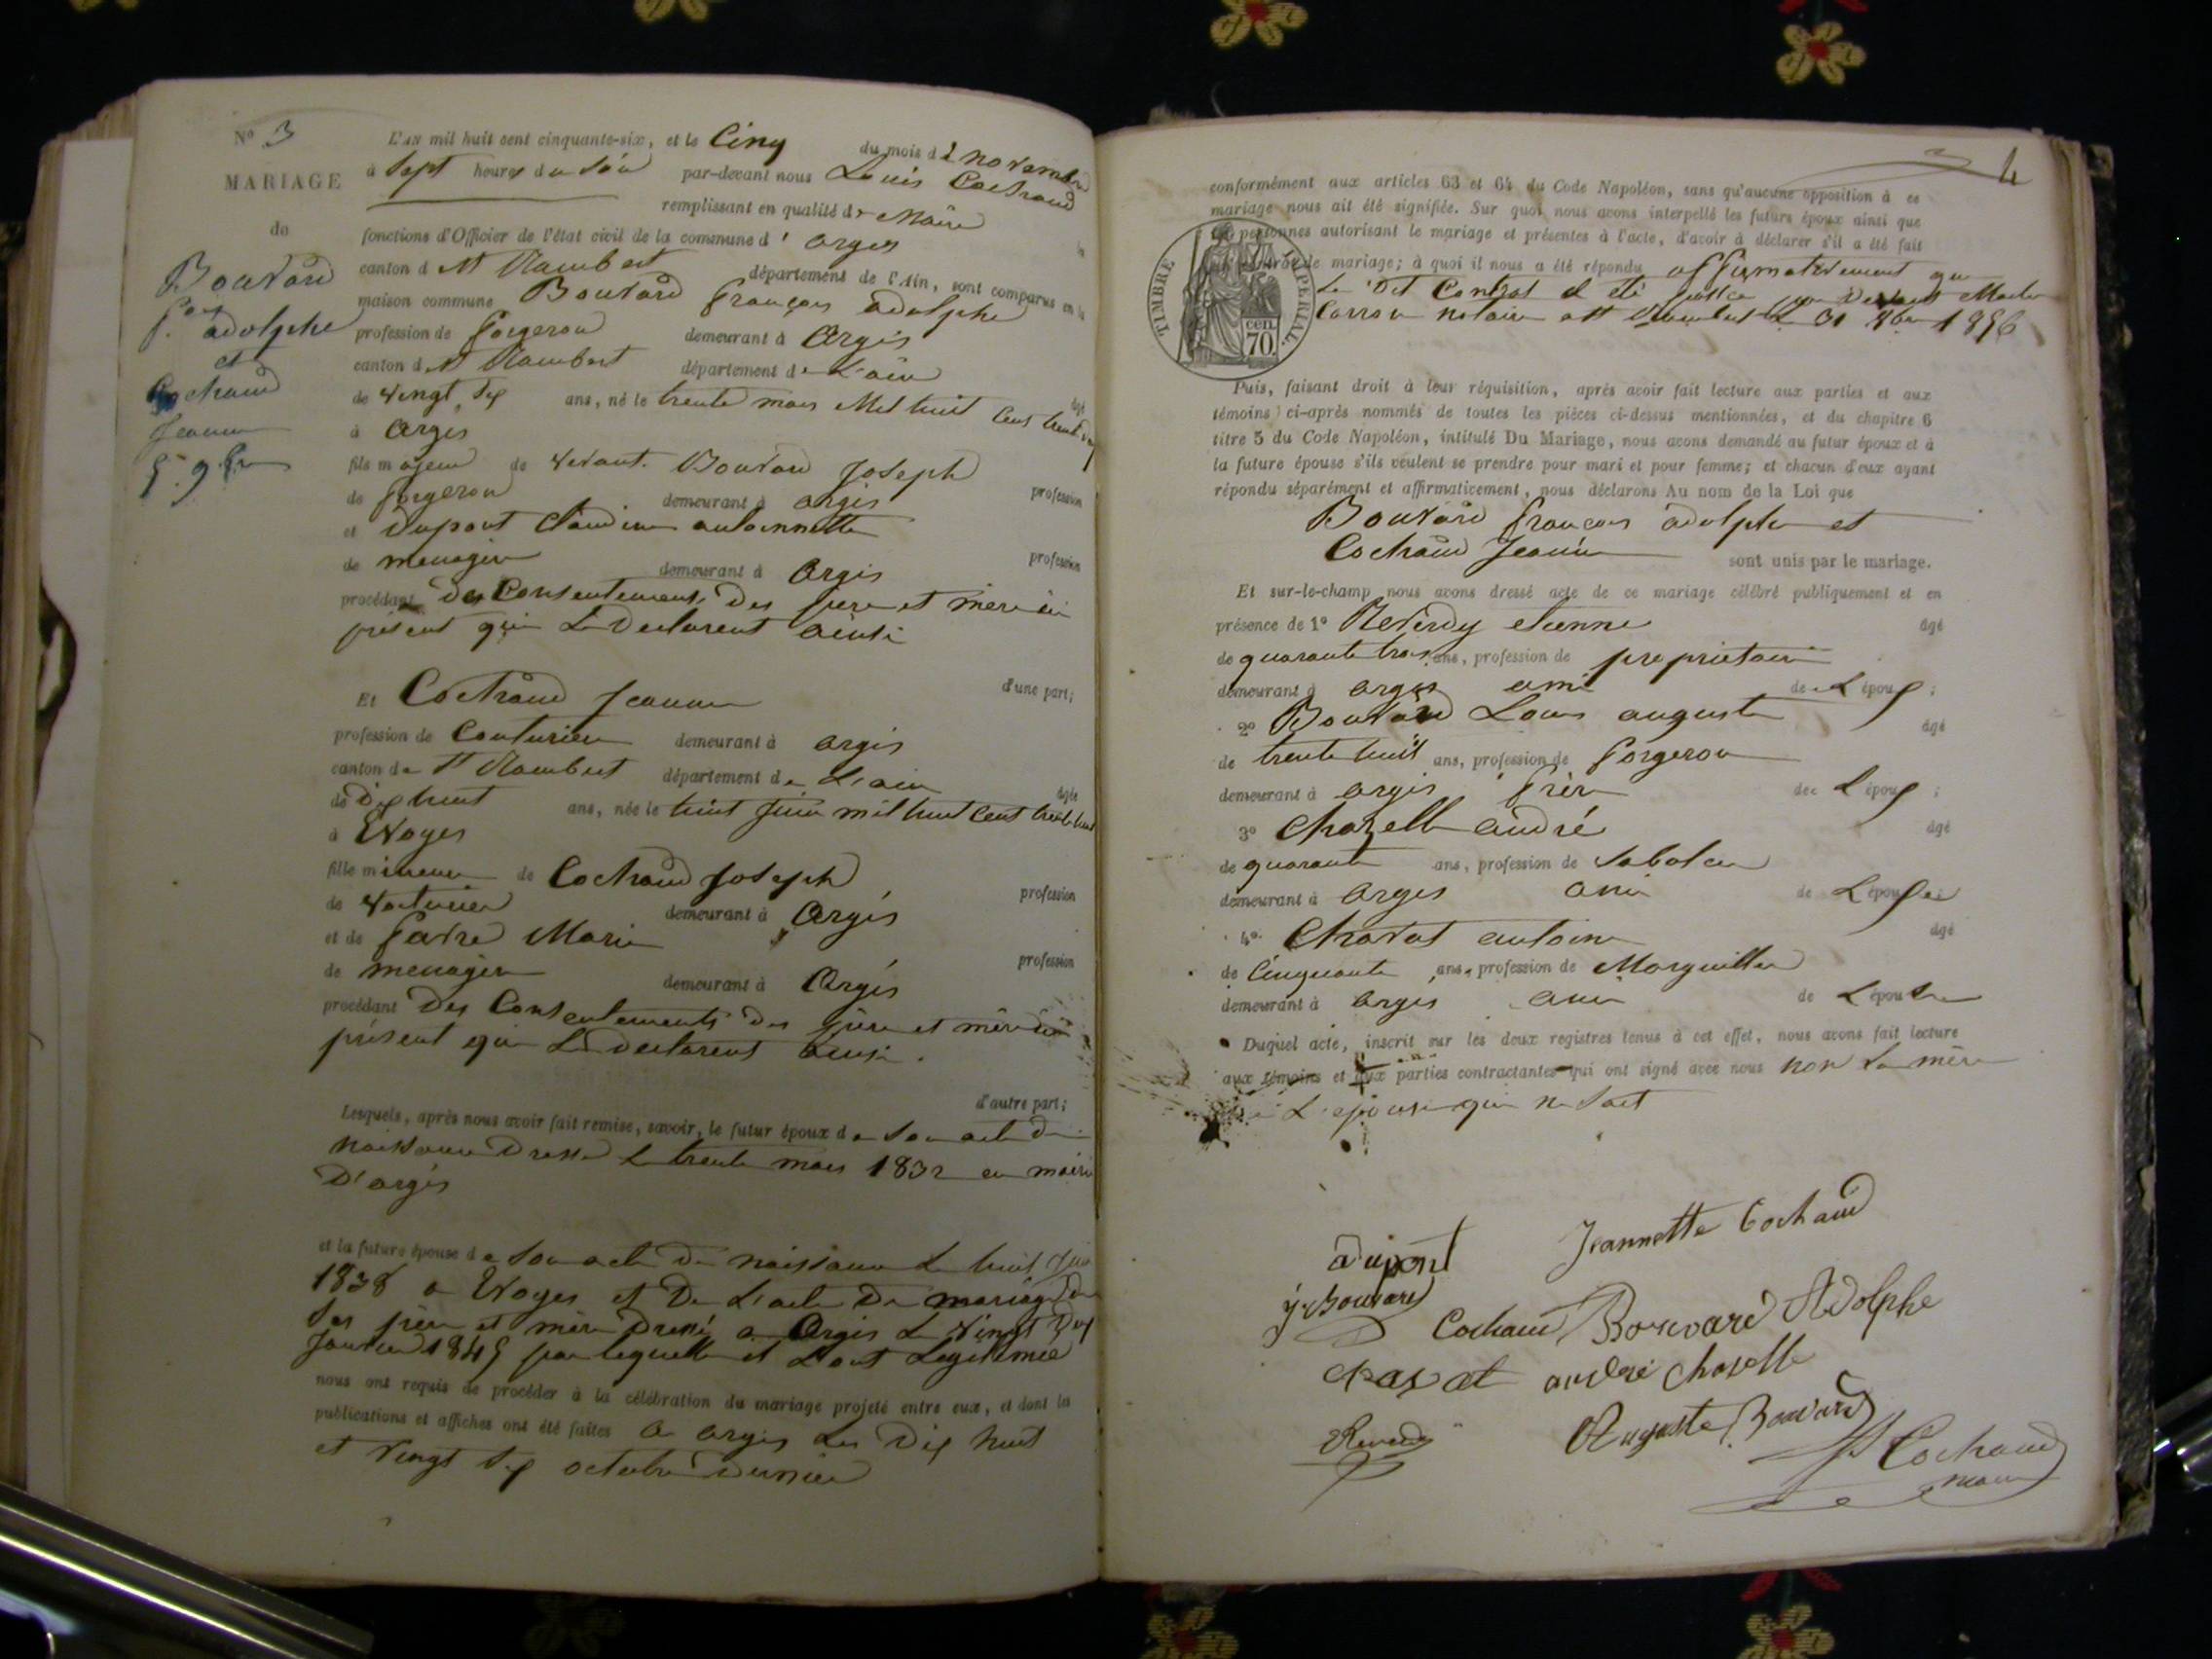 N° 3
MARIAGE
de
Bouvard
f.çois adolphe
et
Cochaud
Jeanne
5. 9bre
L'AN mil huit cent cinquante-six, et le Cinq du mois de novembre
à Sept heures du soir par-devant nous Louis Cochaud
remplissant en qualité de Maire
fonctions d'Officier de l'état civil de la commune d' argis
canton de St Rambert département de l'Ain, sont comparus en la
maison commune Bouvard françois adolphe
profession de forgeron demeurant à Argis
canton de St Rambert département de L'ain
âgé
de vingt six ans, né le trente mars Mil huit Cent
à Argis
fils majeur de vivant. Bouvard Joseph
profession
de forgeron demeurant à argis
et Dupont Claudine antoinnette
profession
de menagère demeurant à Argis
procédant des Consentements Des père et mère ici
présent qui Le Declarent ainsi
d'une part;
Et Cochaud Jeanne
profession de Couturière demeurant à argis
canton de St Rambert département de L'ain
âgée
de Dix huit ans, née le huit Juin mil huit Cent trente huit
à Evoges
fille mineure de Cochaud Joseph
profession
de voiturier demeurant à Argis
et de favre Marie
profession
de menagère demeurant à Argis
procédant Des Consentements Des père et mère ici
présent qui Le Declarent ainsi.
d'autre part;
Lesquels, après nous avoir fait remise, savoir, le futur époux de Son acte de
naissance Dressé Le trente mars 1832 en mairie
D'argis
et la future épouse de Son acte De naissance Le huit Juin
1838 a Evoges et De L'acte De mariage De
Ses père et mère Dressé a Argis Le vingt
Janvier 184 par lequelle il L'ont Legitimée
nous ont requis de procéder à la célébration du mariage projeté entre eux, et dont les
publications et affiches ont été faites a argis Les Dix huit
et vingt six octobre Dernier
4
conformément aux articles 63 et 64 du Code Napoléon, sans qu'aucune opposition à ce
mariage nous ait été signifiée. Sur quoi nous avons interpellé les futurs époux ainsi que
les personnes autorisant le mariage et présentes à l'acte, d'avoir à déclarer s'il a été fait
contrat de mariage; à quoi il nous a été répondu affirmativement que
Le Dit Contrat a été passé par Devant Maitre
notaire a St Rambert Le 31 8bre 1856
TIMBRE IMPERIAL.
cen.
70.
Puis, faisant droit à leur réquisition, après avoir fait lecture aux parties et aux
témoins ci-après nommés de toutes les pièces ci-dessus mentionnées, et du chapitre 6
titre 5 du Code Napoléon, intitulé Du Mariage, nous avons demandé au futur époux et à
la future épouse s'ils veulent se prendre pour mari et pour femme; et chacun d'eux ayant
répondu séparément et affirmativement, nous déclarons Au nom de la Loi que
Bouvard françois adolphe et
Cochaud Jeanne sont unis par le mariage.
Et sur-le-champ nous avons dressé acte de ce mariage célébré publiquement et en
présence de 1° Reverdy etienne âgé
de quarante trois ans, profession de proprietaire
demeurant à argis ami de L époux;
2° Bouvard Louis auguste âgé
de trente huit ans, profession de forgeron
demeurant à argis frère de L époux;
3° Chazelle andré âgé
de quarante ans, profession de Sabotier
demeurant à argis ami de L épouse
4° Chavat antoine âgé
de Cinquante ans, profession de Marguiller
demeurant à argis ami de L épouse
Duquel acte, inscrit sur les deux registres tenus à cet effet, nous avons fait lecture
aux témoins et aux parties contractantes qui ont signé avec nous non La mère
L'epouse qui ne Sait
a Dupont Jeannette Cochaud
j. Bouvard
Cochaud Bouvard Adolphe
Chavat andré Chazelle
Reverdy Auguste Bouvard
Cochaud
maire